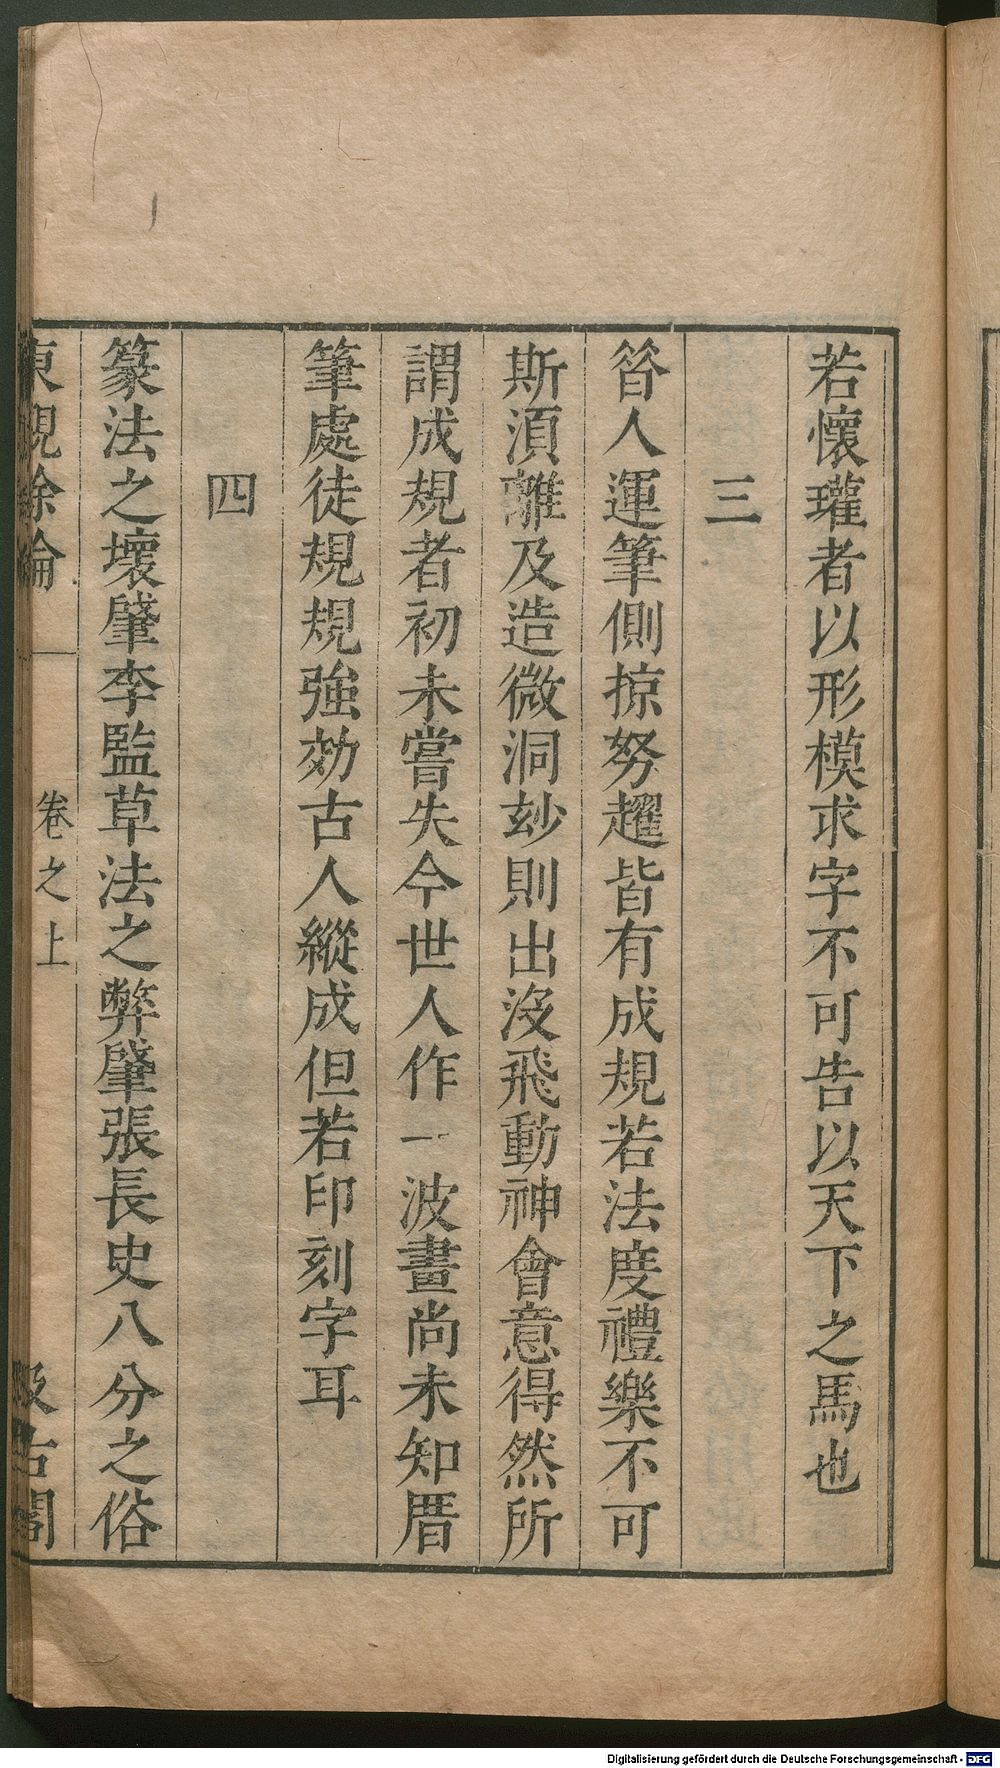 若懷瓘者以形模求字不可告以天下之馬也
三
昝人運筆側掠努趯皆有成規若法度禮樂不可
斯湏離及造微洞玅則出沒飛動神會意得然所
謂成規者初未嘗失今世人作一波畫尚未知厝
筆處徒規規強効古人縱成但若印刻字耳
四
篆法之壞肇李監草法之弊肇張長史八分之俗
東觀餘論 卷之上 汲古閣
Digitalisierung gefördert durch die Deutsche Forschungsgemeinschaft - DFG